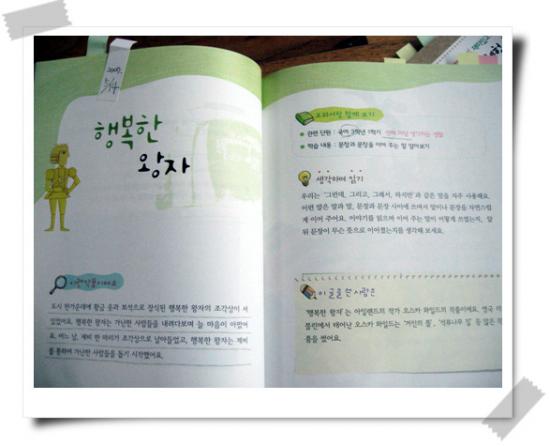 2009.
행복한
왕자
이런 작품이에요
도시 한가운데에 황금 옷과 보석으로 장식된 행복한 왕자의 조각상이 서
있었어요. 행복한 왕자는 가난한 사람들을 내려다보며 늘 마음이 아팠어
요. 어느 날, 제비 한 마리가 조각상으로 날아들었고, 행복한 왕자는 제비
를 통하여 가난한 사람들을 돕기 시작했어요.
교과서랑 함께 보기
관련 단원 : 국어 3학년 1학기
학습 내용 : 문장과 문장을 이어 주는 말 알아보기
생각하며 읽기
우리는 '그런데, 그리고, 그래서, 하지만'과 같은 말을 자주 사용해요.
이런 말은 말과 말, 문장과 문장 사이에 쓰여서 말이나 문장을 자연스럽
게 이어 주어요. 이야기를 읽으며 이어 주는 말이 어떻게 쓰였는지, 앞
뒤 문장이 무슨 뜻으로 이어졌는지를 생각해 보세요.
이 글을 쓴 사람은
'행복한 왕자'는 아일랜드의 작가 오스카 와일드의 작품이에요. 영국 더
블린에서 태어난 오스카 와일드는 '거인의 뜰', '석류나무 집' 등 많은 작
품을 썼어요.